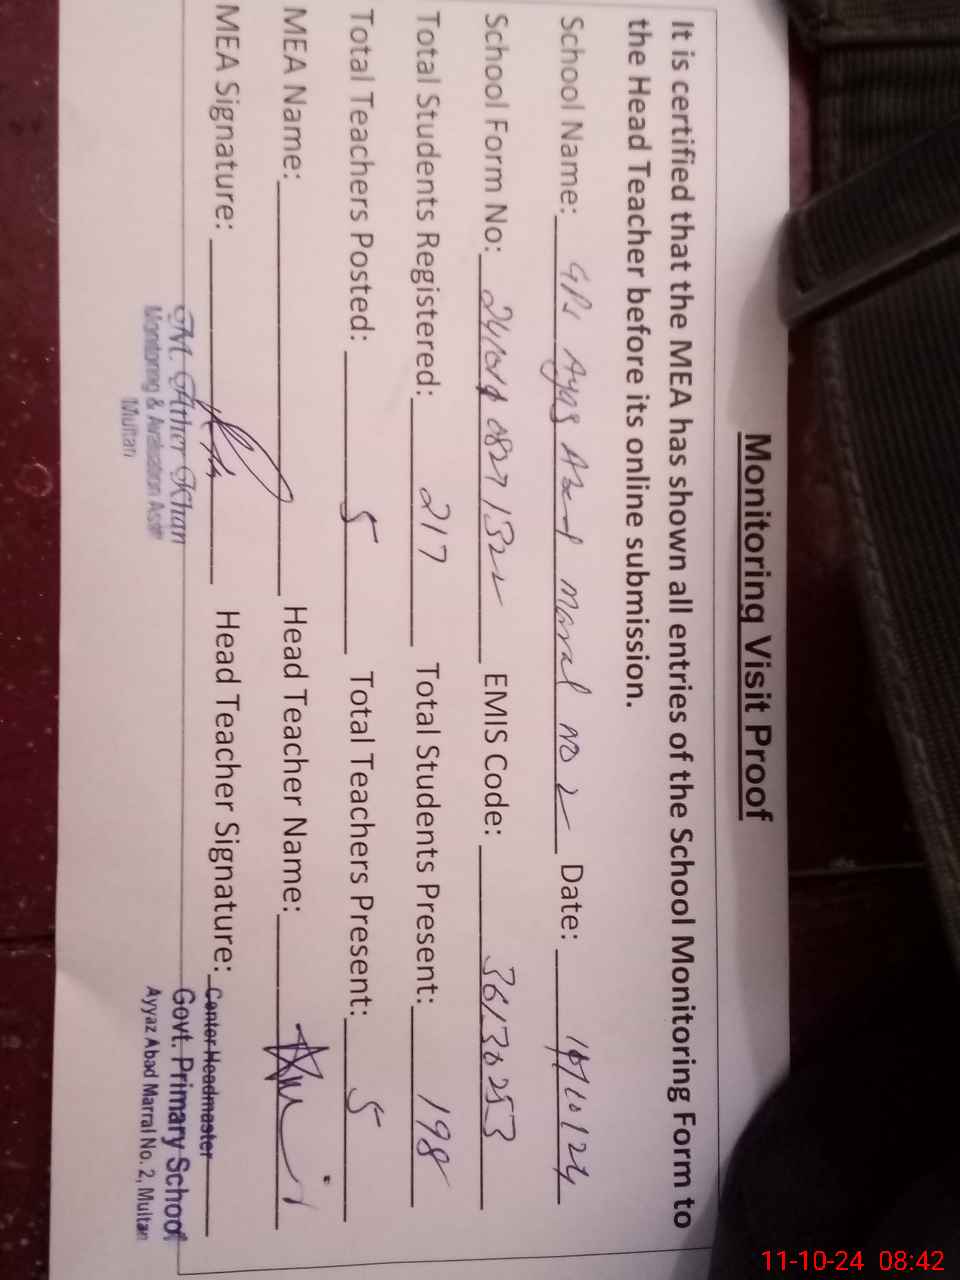 Monitoring Visit Proof
It is certified that the MEA has shown all entries of the School Monitoring Form to
the Head Teacher before its online submission.
School Name: GPS Ayaz Abad Maral No 2 Date:
School Form No: EMIS Code: 36130253
Total Students Registered: 217 Total Students Present: 198
Total Teachers Posted: 5 Total Teachers Present: 5
MEA Name: Head Teacher Name:
MEA Signature: Head Teacher Signature:
M. Ather Khan
Monitoring & Multan
Center Headmaster
Govt. Primary School
Ayyaz Abad Marral No. 2, Multan
11-10-24 08:42